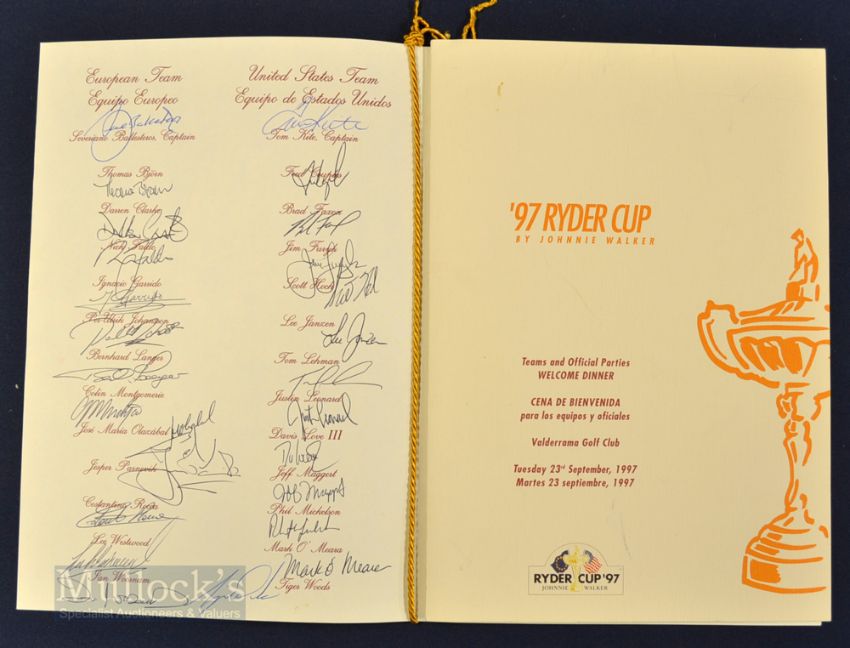 European Team
Equipo Europeo
Severiano Ballesteros, Captain
Thomas Björn
Darren Clarke
Nick Faldo
Ignacio Garrido
Per-Ulrik Johansson
Bernhard Langer
Colin Montgomerie
José Maria Olazábal
Jesper Parnevik
Costantino Rocca
Lee Westwood
Ian Woosnam
United States Team
Equipo de Estados Unidos
Tom Kite, Captain
Fred Couples
Brad Faxon
Jim Furyk
Scott Hoch
Lee Janzen
Tom Lehman
Justin Leonard
Davis Love III
Jeff Maggert
Phil Mickelson
Mark O'Meara
Mark O Meara
Tiger Woods
Mullock's
Specialist Auctioneers & Valuers
'97 RYDER CUP
BY JOHNNIE WALKER
Teams and Official Parties
WELCOME DINNER
CENA DE BIENVENIDA
para los equipos y oficiales
Valderrama Golf Club
Tuesday 23rd September, 1997
Martes 23 septiembre, 1997
RYDER CUP '97
JOHNNIE WALKER